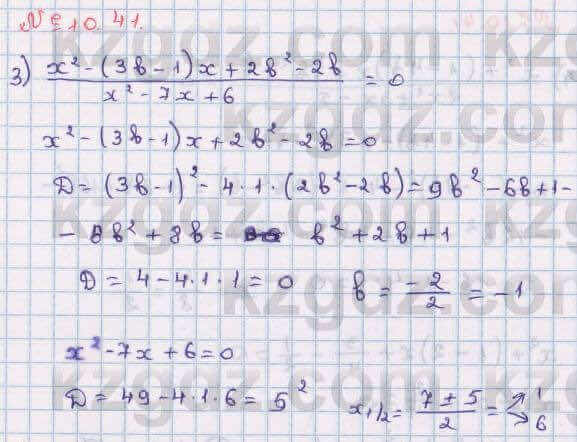 № 10.41.
3) (x² - (3b - 1)x + 2b² - 2b) / (x² - 7x + 6) = 0
x² - (3b - 1)x + 2b² - 2b = 0
D = (3b - 1)² - 4 · 1 · (2b² - 2b) = 9b² - 6b + 1 -
- 8b² + 8b = b² + 2b + 1
D = 4 - 4 · 1 · 1 = 0 b = -2/2 = -1
x² - 7x + 6 = 0
D = 49 - 4 · 1 · 6 = 5² x₁,₂ = (7 ± 5)/2 = 1 6
kzgdz.com